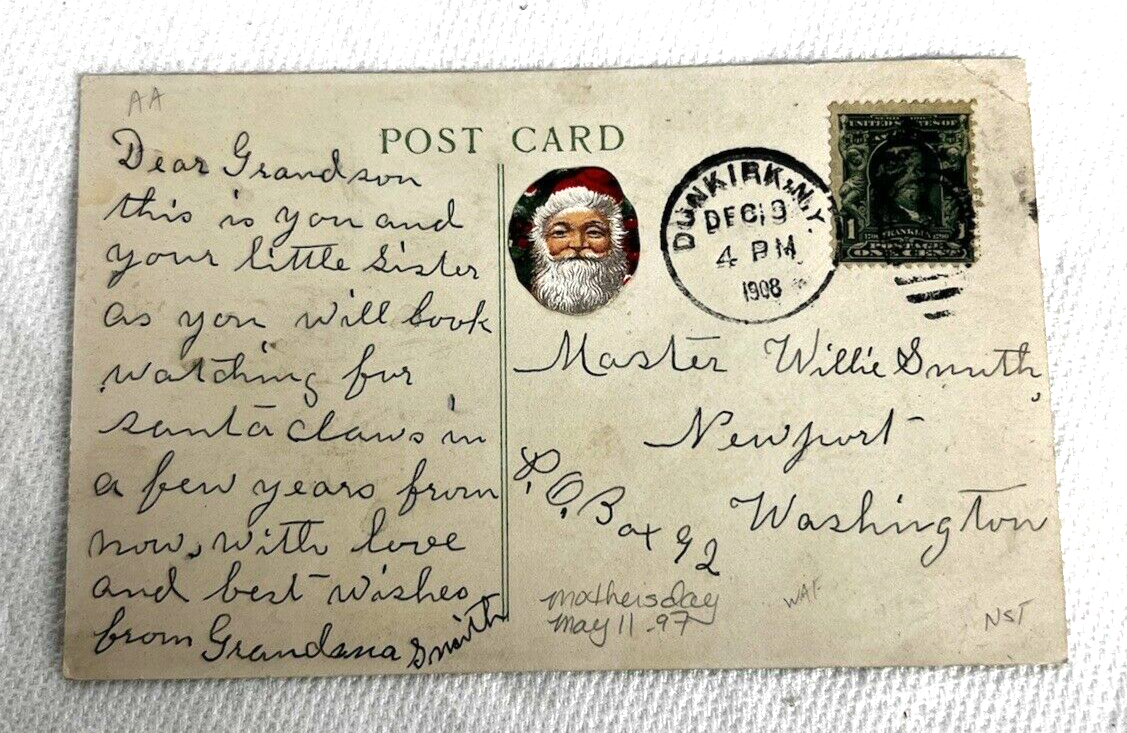 AA
POST CARD
Dear Grandson
this is you and
your little sister
as you will look
watching for
santa claws in
a few years from
now, with love
and best wishes
from Grandma Smith
DUNKIRK, N.Y.
DEC 19
4 PM
1908
UNITED STATES OF
1 FRANKLIN 1
POSTAGE
ONE CENT
Master Willie Smith,
Newport
P.O. Box 92
Washington
mothers day
may 11-97
WAF
NST